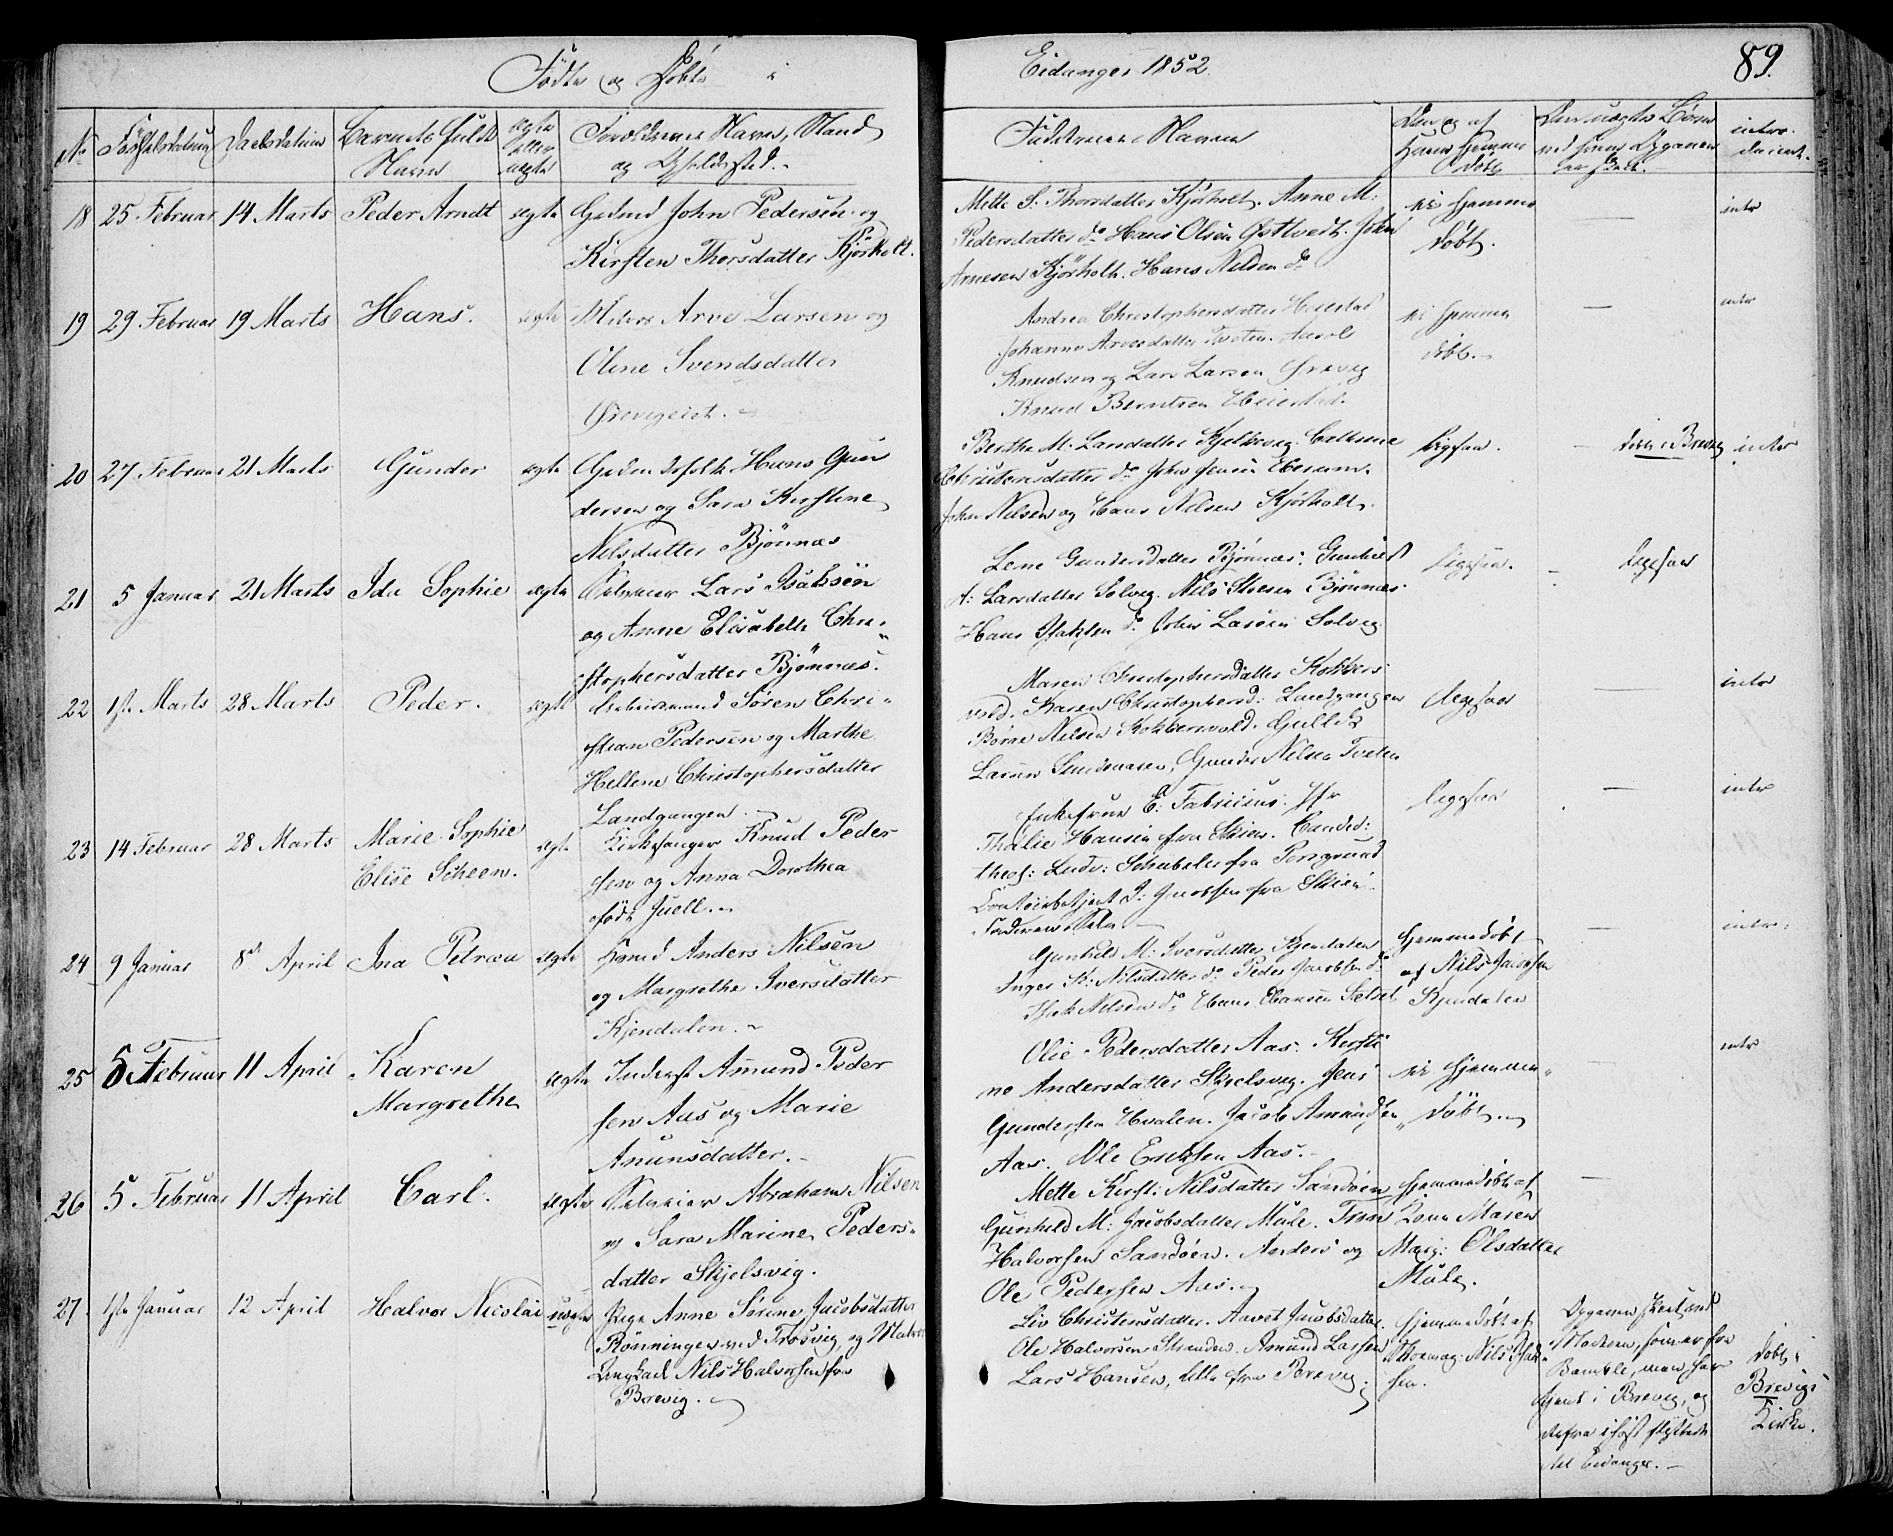 Födte og Döbte i Eidanger 1852. 89.
No Födselsdatum Daabsdatum Barnets fulde Navn ægte eller uægte Forældrenes Navn, Stand og Opholdssted.
Faddernes Navne
intro-
18 25 Februar 14 Marts Peder Arndt ægte Gbmd John Pedersen og
Kirsten Thorsdatter Kjörholt.
Mette S. Thorsdatter Kjörholt. Anne M:
Pedersdatter do Hans Olsen Ostvedt. John
Arnesen Kjörholt. Hans Nilsen do
ei hjemme
döbt.
intr
19 29 Februar 19 Marts Hans. ægte Arve Larsen og
Oline Svendsdatter
Andrea Christophersdatter Heiestad
Johanne Arvesdatter Tveten.
Knudsen og Lars Larsen Örevig
Knud Berntsen Heiestad.
ei hjemme
döbt.
intr
20 27 Februar 21 Marts Gunder ægte Hans Gun
dersen og Sara Kirstine
Nilsdatter Bjönnæs
Berthe M. Larsdatter Cathrine
Christensdatter do John Jensen
John Nilsen og Hans Nilsen Kjörholt.
ligesaa.
döbt i Brevig
intr
21 5 Januar 21 Marts Ida Sophie ægte Lars Isaksön
og Anne Elisabeth Chri-
stophersdatter Bjönnæs.
Lene Gundersdatter Bjönnæs. Gunhild
A: Larsdatter Solvig. Nils Bjönnæs
Hans Isaksen do John Larsen Solvig
ligesaa.
ligesaa
22 1ste Marts 28 Marts Peder. ægte Sören Chri-
stian Pedersen og Marthe
Hellene Christophersdatter
Landgangen.
Maren Christophersdatter Kokkers
vold. Karen Christophersd: Landgangen
Börre Nilsen Kokkersvold. Gullik
Larsen Gunder Nilsen Tveten
ligesaa
intr
23 14 Februar 28 Marts Marie Sophie
Elise Scheen.
ægte Kirkesanger Knud Peder
sen og Anna Dorothea
född Juell.
Enkefrue E. Fabricius. Jfr
Thalie Hansen fra Skien. Candid:
theol: Ludv: Schubeler fra Porsgrund
J: Jacobsen fra Skien.
Faderen selv
ligesaa
intr
24 9 Januar 8de April Ina Petrea ægte Gbmd Anders Nilsen
og Margrethe Iversdatter
Kjendalen.
Gunhild M: Iversdatter Kjendalen
Inger K: Nilsdatter do Peder Jacobsen do
Isak Nilsen do Hans Hansen
Hjemmedöbt
af Nils Jacobsen
Kjendalen
intr
25 5 Februar 11 April Karen
Margrethe
ægte Inderst Amund Peder
sen Aas og Marie
Anunsdatter.
Olie Pedersdatter Aas. Kersti
ne Andersdatter Skjelsvig. Jens
Gundersen Hvalen. Jacob Amundsen
Aas. Ole Eriksen Aas.
ei hjemme-
döbt.
intr
26 5 Februar 11 April Carl. ægte Abraham Nilsen
og Sara Marine Peders-
datter Skjelsvig.
Mette Kirst: Nilsdatter Sandöen
Gunhild M: Jacobsdatter Mule.
Halvorsen Sandöen. Anders og
Ole Pedersen Aas.
hjemmedöbt af
Kone Maren
Marg: Olsdatter
Mule.
27. 1ste Januar 12 April Halvor Nicolai uægte Pige Anne Sörine Jacobsdatter
Rönningen ved Trosvig og
Ungkarl Nils Halvorsen fra
Brevig.
Liv Christensdatter. Jacobsdatter.
Ole Halvorsen Stranden. Amund Larsen
Lars Hansen, alle fra Brevig.
hjemmedöbt af
Nils
sen.
Opgaven
Moderen, som er fra
Bamble, men har
tjent i Brevig, og
derfra i höst flyttede
til Eidanger.
Döbt i
Brevigs
Kirke.